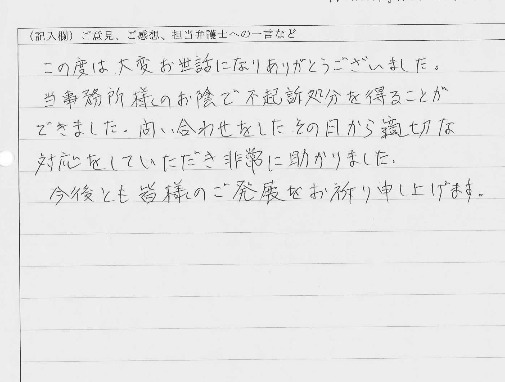 (記入欄) ご意見、ご感想、担当弁護士への一言など
この度は大変お世話になりありがとうございました。
当事務所様のお陰で不起訴処分を得ることが
できました。問い合わせをしたその日から適切な
対応をしていただき非常に助かりました。
今後とも皆様のご発展をお祈り申し上げます。